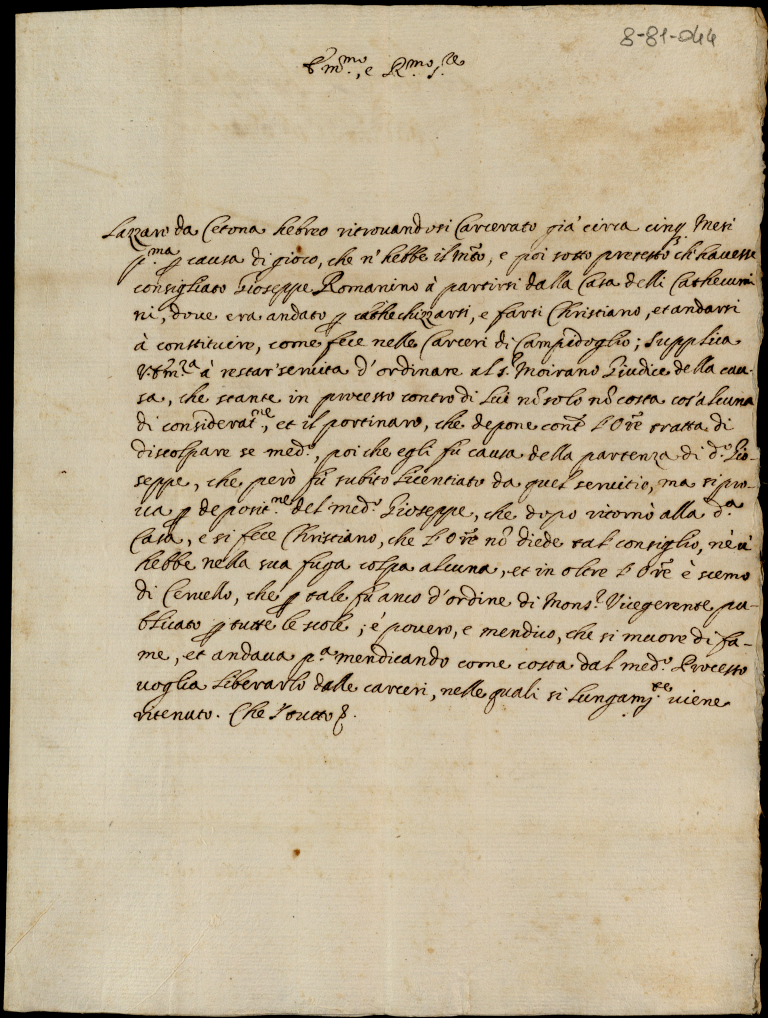 8-81-044
Em.mo, e R.mo S.re
Lazzaro da Cetona hebreo ritrouandosi Carcerato già circa cinq; Mesi
p.ma p causa di gioco, che n'hebbe il m̃to, e poi sotto pretesto ch'hauesse
consigliato Gioseppe Romanino à partirsi dalla Casa delli Cathecumi
ni, doue era andato p cathechizzarsi, e farsi Christiano, et andarsi
à constituire, come fece nelle Carceri di Campidoglio; Supplica
V. Em.za à restar seruita d'ordinare al S.r Moirano Giudice della cau-
sa, che stante in processo contro di Lui nõ solo nõ costa cos'alcuna
di considerat.ne, et il portinaro, che depone cont.o l'Ore tratta di
discolpare se med.o, poi che egli fù causa della partenza di d.o Gio-
seppe, che però fù subito Licentiato da quel seruitio, ma si pro-
ua p deposit.ne del med.o Gioseppe, che dopo ritornò alla d.a
Casa, e si fece Christiano, che l'Ore nõ diede tal consiglio, nè u'
hebbe nella sua fuga colpa alcuna, et in oltre l'Ore è scemo
di Ceruello, che p tale fù anco d'ordine di Mons.r Vicegerente pu-
blicato p tutte le scole; è pouero, e mendico, che si muore di fa-
me, et andaua p.a mendicando come costa dal med.o Processo
uoglia Liberarlo dalle carceri, nelle quali si Lungam.te uiene
ritenuto. Che l'tutto &.